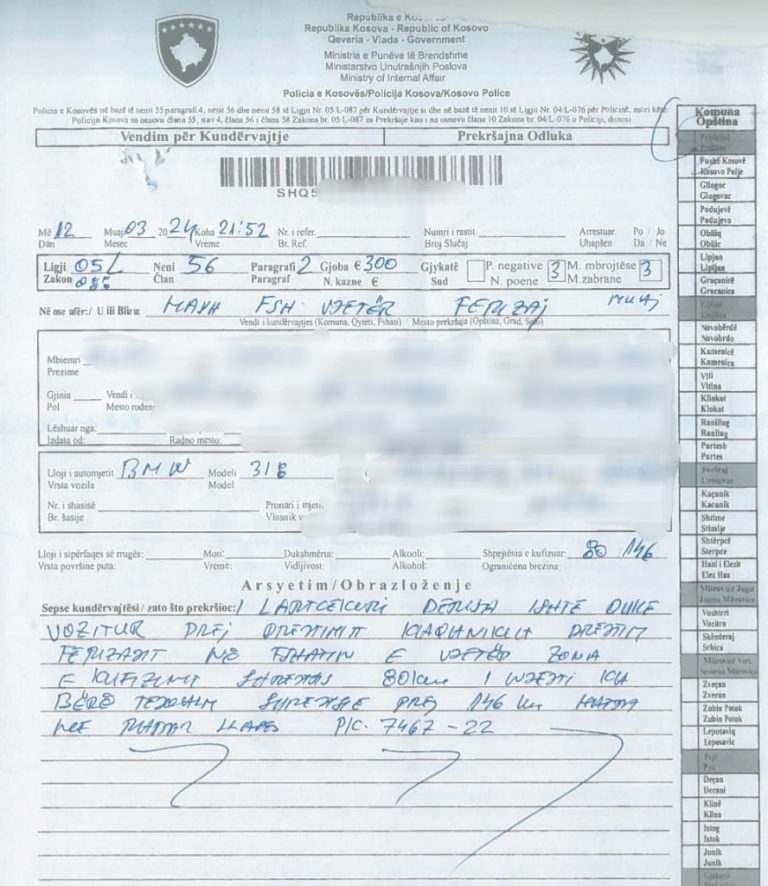 Republika e
Republika Kosova - Republic of Kosovo
Qeveria - Vlada - Government
Ministria e Punëve të Brendshme
Ministarstvo Unutrašnjih Poslova
Ministry of Internal Affair
Policia e Kosovës/Policija Kosova/Kosovo Police
Policia e Kosovës në bazë të nenit 55 paragrafi 4, nenit 56 dhe nenit 58 të Ligjit Nr. 05/L-087 për Kundërvajtje si dhe në bazë të nenit 10 të Ligjit Nr. 04/L-076 për Policinë, mori këtë:
Policija Kosova na osnovu člana 55, stav 4, člana 56 i člana 58 Zakona br. 05/L-087 za Prekršaje kao i na osnovu člana 10 Zakona br. 04/L-076 o Policiji, donosi
Vendim për Kundërvajtje Prekršajna Odluka
SHQ5
Më 12 Muaj 03 2024 Koha 21:52 Nr. i refer. Numri i rastit. Arrestuar. Po / Jo
Dan Mesec Vreme Br. Ref. Broj Slučaj Uhapšen Da / Ne
Ligji 05L Neni 56 Paragrafi 2 Gjoba € 300 Gjykatë P. negative 3 M. mbrojtëse 3
Zakon 085 Član Paragraf N. kazne € Sud N. poene M.zabrane
Në ose afër:/ U ili Blizu: FSH VJETËR FERIZAJ muaj
Vendi i kundërvajtjes (Komuna, Qyteti, Fshati) / Mesto prekršaja (Opština, Grad, Selo)
Mbiemri
Prezime
Gjinia Vendi i
Pol Mesto rođen
Lëshuar nga:
Izdata od: Radno mesto:
Lloji i automjetit BMW Modeli 318
Vrsta vozila Model
Nr. i shasisë Pronari i mjeti
Br. šasije Vlasnik v
Lloji i sipërfaqes së rrugës: Moti: Dukshmëria: Alkooli: Shpejtësia e kufizuar: 80 146
Vrsta površine puta: Vreme: Vidljivost: Alkohol: Ograničena brzina:
Arsyetim/Obrazloženje
Sepse kundërvajtësi / zato što prekršioc: I LARTCEKURI DERISA ISHTE DUKE
VOZITUR PREJ DREJTIMIT DREJTIM
FERIZAJIT NË FSHATIN E VJETËR ZONA
E KUFIZIMIT 80km I NJEJTI KA
BËRË PREJ 146 km
NË P/C. 7467-22
Komuna
Opština
Prishtinë
Priština
Fushë Kosovë
Kosovo Polje
Gllogoc
Glogovac
Podujevë
Podujevo
Obiliq
Obilic
Lipjan
Lipljan
Graçanicë
Gracanica
Novobërdë
Novobrdo
Kamenicë
Kamenica
Viti
Vitina
Kllokot
Klokot
Ranillug
Ranilug
Partesh
Partes
Ferizaj
Urosevac
Kaçanik
Kacanik
Shtime
Stimlje
Shtërpcë
Sterpce
Hani i Elezit
Elez Han
Mitrovicë Jugu
Juzna Mitrovica
Vushtrri
Vucitrn
Skënderaj
Srbica
Mitrovicë Veri.
Severna Mitrovica
Zveçan
Zvecan
Zubin Potok
Zubin Potok
Leposaviq
Leposavic
Pejë
Pec
Deçan
Decani
Klinë
Klina
Istog
Istok
Junik
Junik
Gjakovë